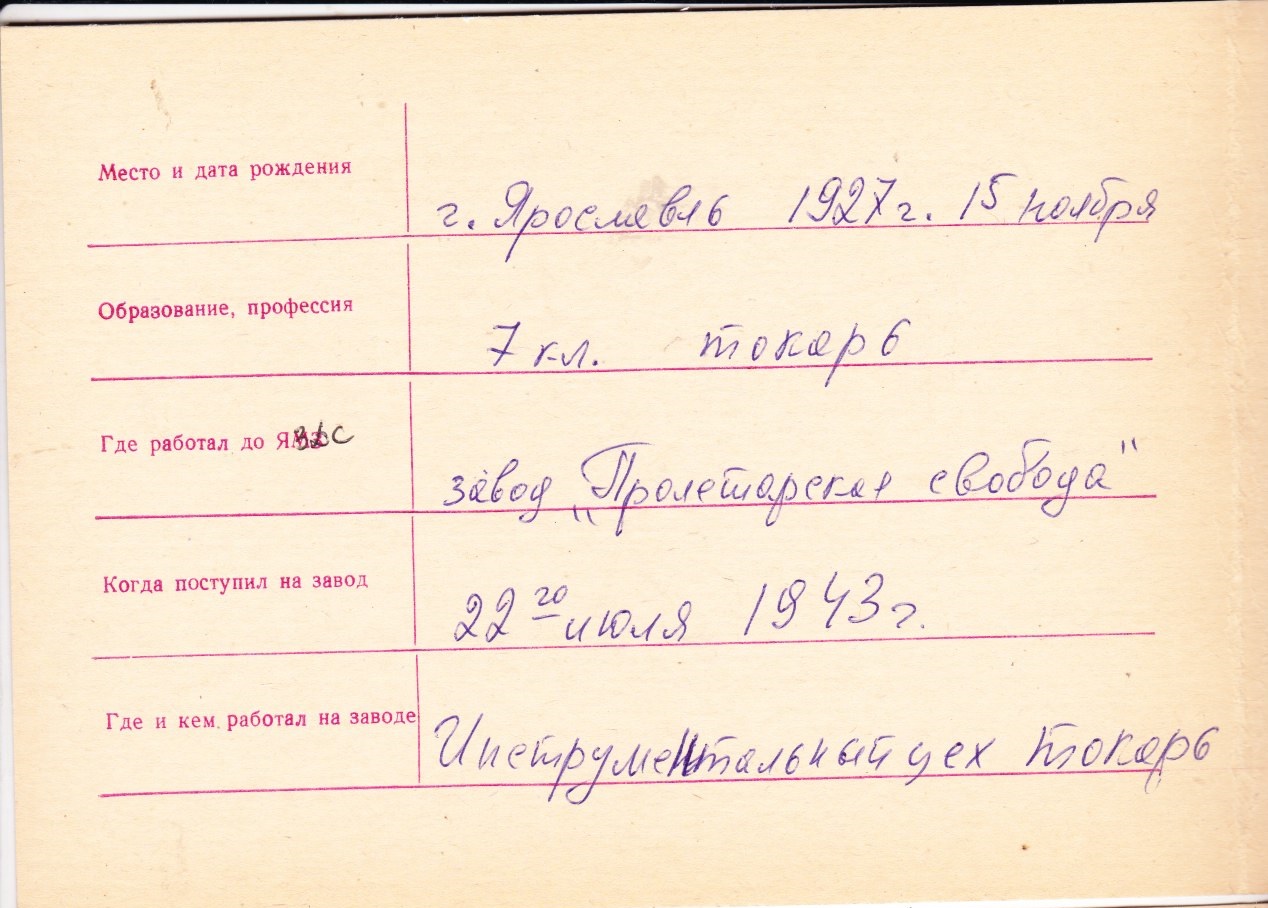 Место и дата рождения
г. Ярославль 1927г. 15 ноября
Образование, профессия
7 кл. токарь
Где работал до
завод „Пролетарская свобода"
Когда поступил на завод
22го июля 1943г.
Где и кем работал на заводе
Инструментальный цех токарь